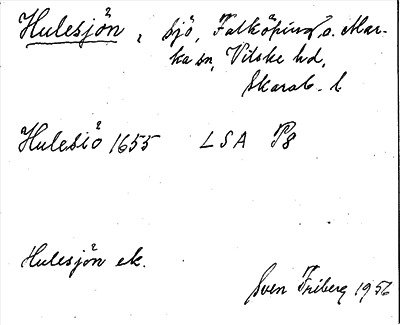 Hulesjön, sjö, Falköping o. Mar-
ka sn, Vilske hd,
Skarab. l
Hulesiö 1655 LSA P8
Hulesjön ek.
Sven Friberg 1956